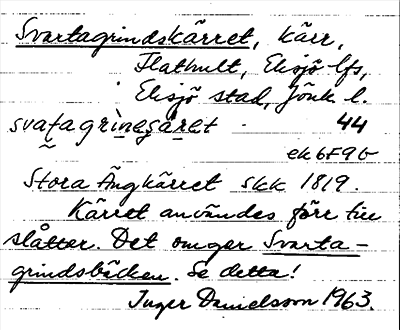 Svartagrindskärret, kärr,
Flathult, Eksjö lfs,
Eksjö stad, Jönk l.
svat̬agrinesɡäret 44
ek 6F9b
Stora Ängkärret skk 1819.
Kärret användes förr till
slåtter. Det omger Svarta-
grindsbäcken. Se detta!
Inger Danielsson 1963.